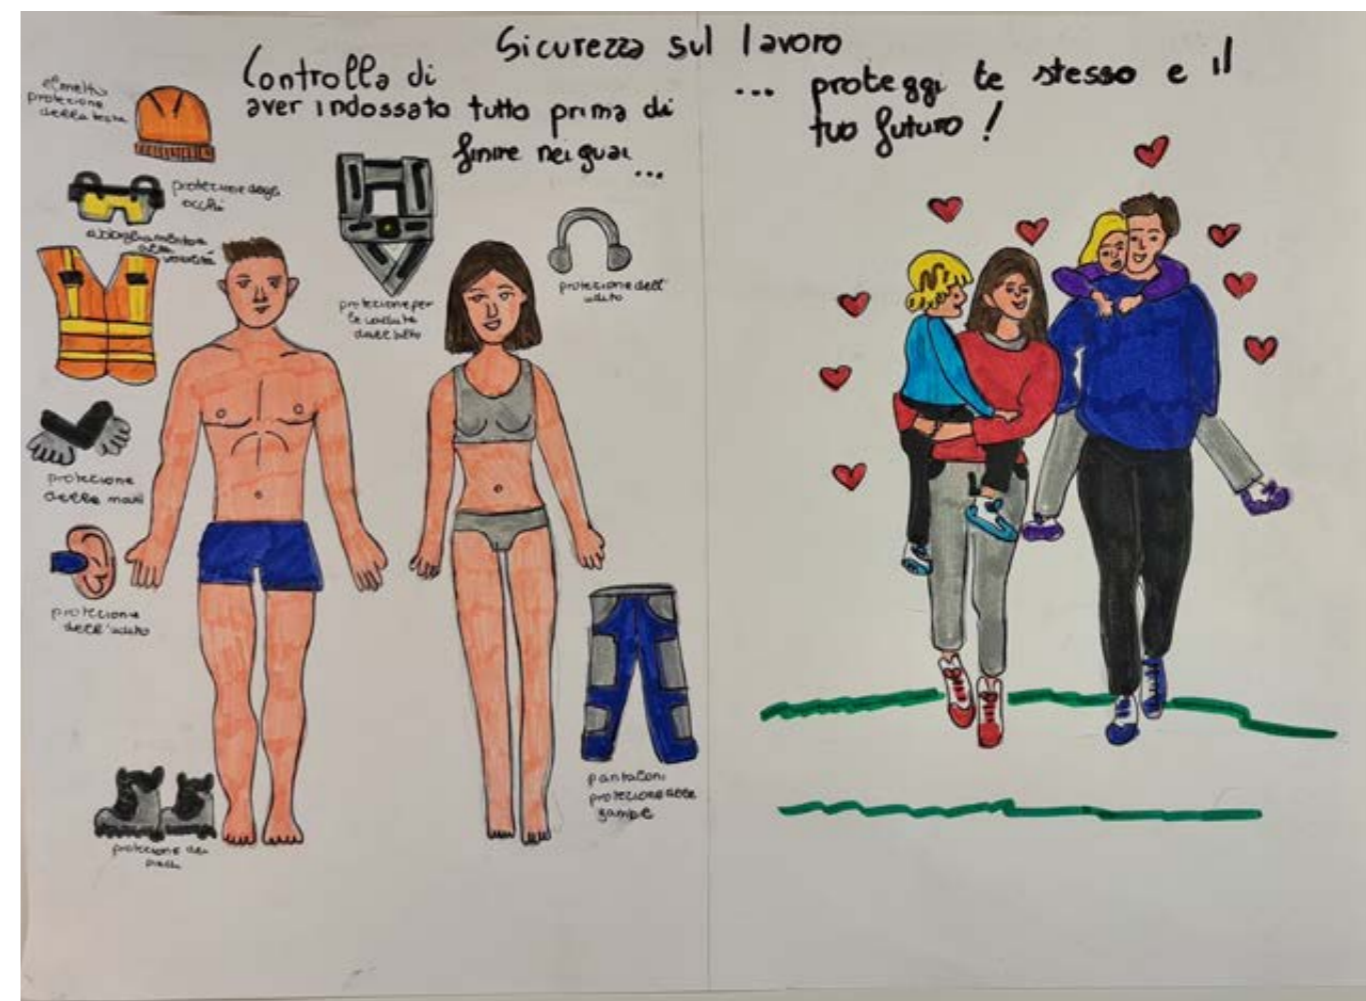 Sicurezza sul lavoro
Controlla di
aver indossato tutto prima di
finire nei guai
...
... proteggi te stesso e il
tuo futuro!
elmetto
protezione
della testa
protezione degli
occhi
abbigliamento
alta
visibilità
protezione
delle mani
protezione
dell'udito
protezione dei
piedi
protezione per
le cadute
dall'alto
protezione dell'
udito
pantaloni
protezione delle
gambe